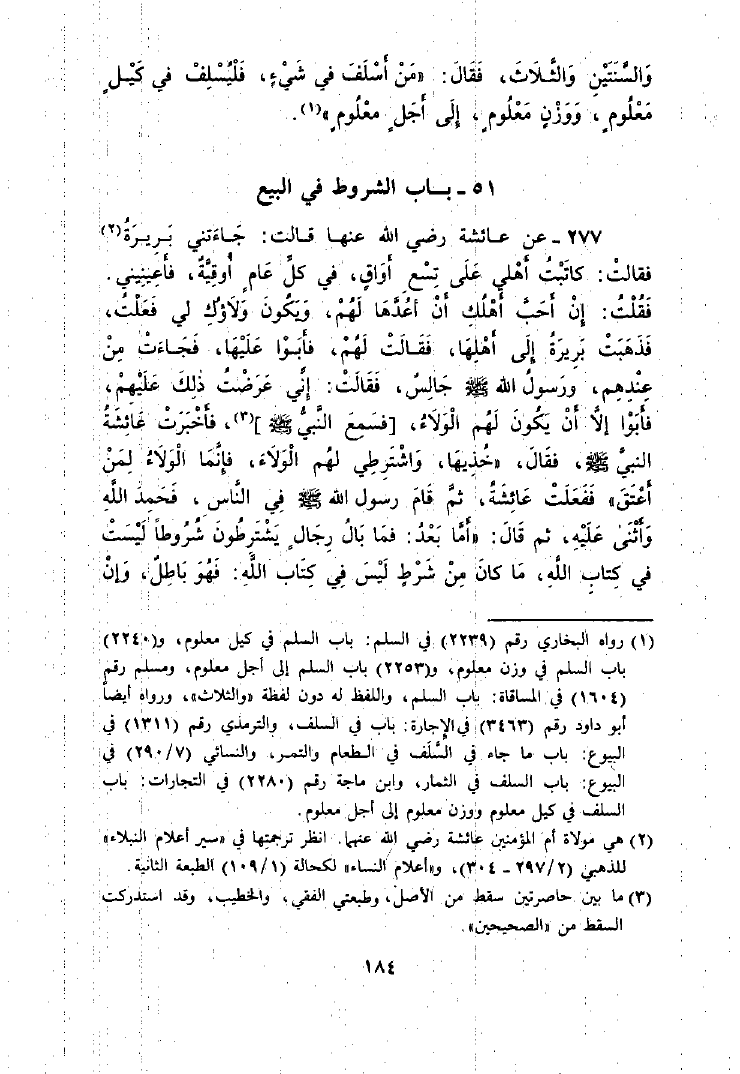 وَالسَّنَتَيْنِ وَالثَّلَاثَ، فَقَالَ: «مَنْ أَسْلَفَ في شَيْءٍ، فَلْيُسْلِفْ في كَيْلٍ
مَعْلُومٍ، وَوَزْنٍ مَعْلُومٍ، إِلَى أَجَلٍ معْلُومٍ»(١).
٥١ - بـاب الشروط في البيع
٢٧٧ - عن عائشة رضي الله عنهـا قـالت: جَـاءَتني بَـرِيـرَةُ(٢)
فقالتْ: كاتَبْتُ أَهْلي عَلَى تِسْعِ أَوَاقٍ، في كلِّ عَامٍ أُوقِيَّةٌ، فَأَعِينِيني.
فَقُلْتُ: إِنْ أَحَبَّ أَهْلُكِ أَنْ أَعُدَّهَا لَهُمْ، وَيَكُونَ وَلَاؤكِ لي فَعَلْتُ،
فَذَهَبَتْ بَرِيرَةُ إِلَى أَهْلِهَا، فَقَـالَتْ لَهُمْ، فأَبَـوْا عَلَيْهَا، فَجَـاءَتْ مِنْ
عِنْدِهِم، ورَسولُ الله ﷺ جَالِسٌ، فَقَالَتْ: إِنَّي عَرَضْتُ ذٰلِكَ عَلَيْهِمْ،
فأَبَوْا إلَّا أَنْ يَكُونَ لَهُم الْوَلَاءُ، [فسَمِعَ النَّبيُّ ﷺ](٣)، فَأَخْبَرَتْ عَائِشَةُ
النبيَّ ﷺ، فقَالَ، «خُذِيهَا، وَاشْتَرِطي لهُم الْوَلَاءَ، فَإِنَّمَا الْوَلَاءُ لِمَنْ
أَعْتَقَ» فَفَعَلَتْ عَائِشَةُ، ثمَّ قَامَ رسول الله ﷺ فِي النَّاسِ، فَحَمِدَ اللَّهَ
وَأَثْنَىٰ عَلَيْهِ، ثم قَالَ: «أَمَّا بَعْدُ: فمَا بَالُ رِجَالٍ يَشْتَرِطُونَ شُرُوطاً لَيْسَتْ
في كِتابِ اللَّهِ، مَا كانَ مِنْ شَرْطٍ لَيْسَ فِي كِتَابِ اللَّهِ: فَهُوَ بَاطِلٌ، وَإنْ
(١) رواه البخاري رقم (٢٢٣٩) في السلم: باب السلم في كيل معلوم، و(٢٢٤٠)
باب السلم في وزن معلوم، و(٢٢٥٣) باب السلم إلى أجل معلوم، ومسلم رقم
(١٦٠٤) في المساقاة: باب السلم، واللفظ له دون لفظة «والثلاث»، ورواه أيضاً
أبو داود رقم (٣٤٦٣) في الإجارة: باب في السلف، والترمذي رقم (١٣١١) في
البيوع: باب ما جاء في السَّلَف في الـطعام والتمـر، والنسائي (٢٩٠/٧) في
البيوع: باب السلف في الثمار، وابن ماجة رقم (٢٢٨٠) في التجارات: باب
السلف في كيل معلوم ووزن معلوم إلى أجل معلوم.
(٢) هي مولاة أم المؤمنين عائشة رضي الله عنها. انظر ترجمتها في «سير أعلام النبلاء»
للذهبي (٢٩٧/٢ - ٣٠٤)، و«أعلام النساء» لكحالة (١٠٩/١) الطبعة الثانية.
(٣) ما بين حاصرتين سقط من الأصل، وطبعتي الفقي، والخطيب، وقد استدركت
السقط من «الصحيحين».
١٨٤